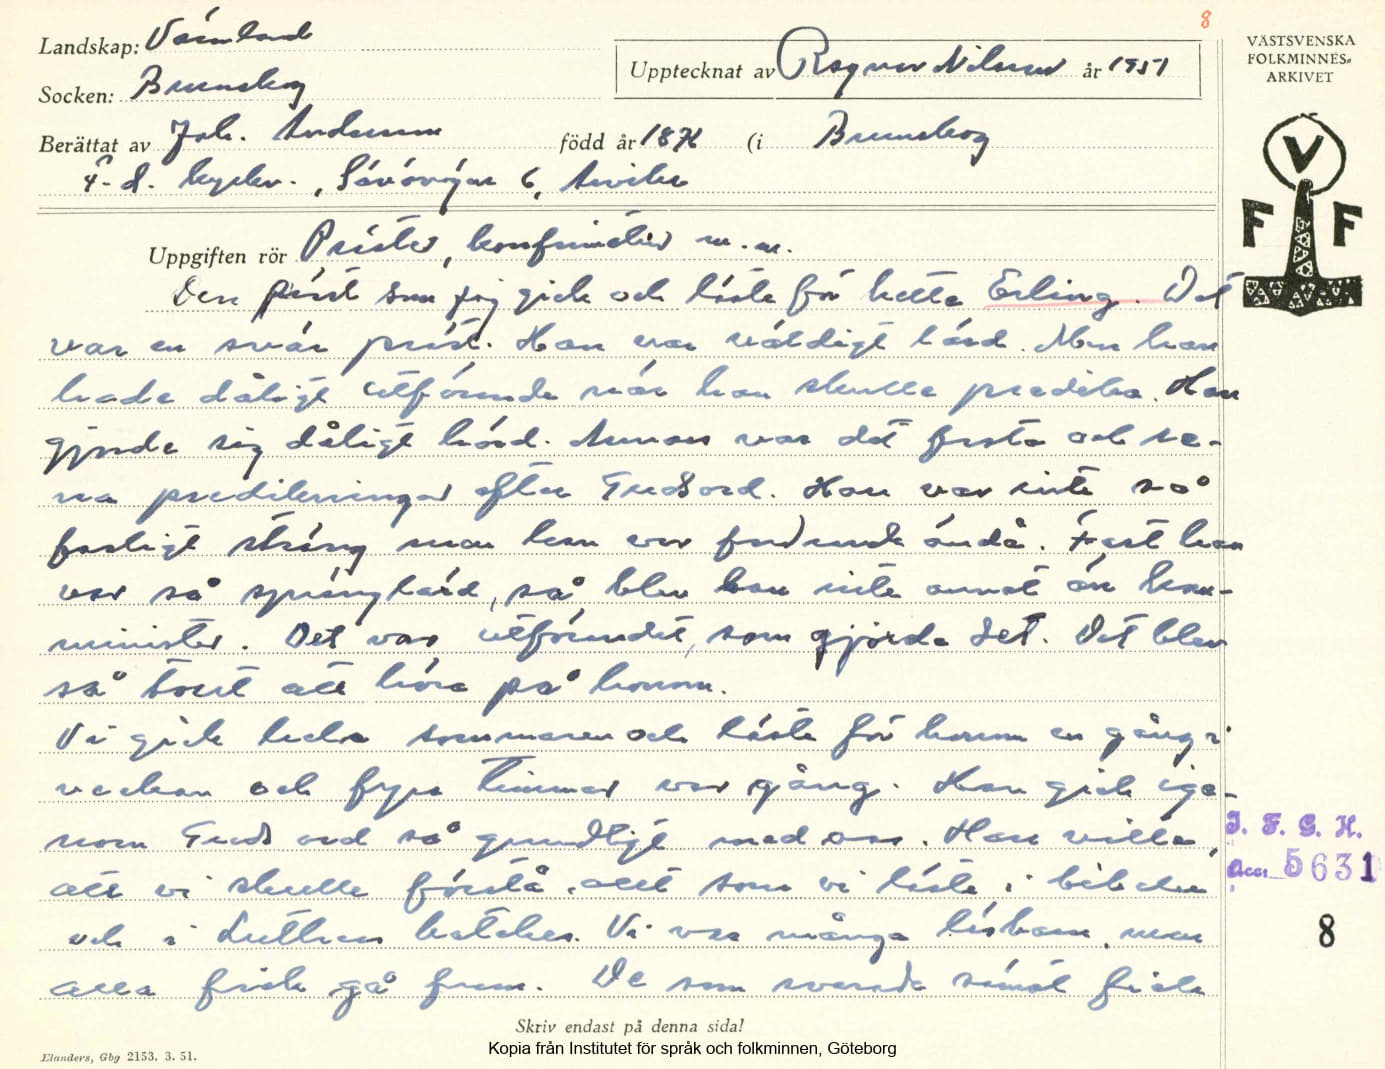 8
Landskap: Värmland
Socken: Brunskog
Upptecknat av Ragnar Nilsson år 1951
Berättat av Joh. Andersson född år 18 (i Brunskog
f. d. kyrkv., 6, Arvika
Uppgiften rör Präster, konfirmation m.m.
VÄSTSVENSKA
FOLKMINNES-
ARKIVET
V
F F
Den präst som jag gick och läste för hette Erling. Det
var en svår präst. Han var väldigt lärd. Men han
hade dåligt utförande när han skulle predika. Han
gjorde sig dåligt hörd. Annars var det fasta och re-
na predikningar efter Guds ord. Han var inte så
farligt sträng men han var fordrande ändå. Fast han
var så spränglärd, så blev han inte annat än kom-
minister. Det var utförandet, som gjorde det. Det blev
så torrt att höra på honom.
Vi gick hela sommaren och läste för honom en gång i
veckan och fyra timmar var gång. Han gick ige-
nom Guds ord så grundligt med oss. Han ville,
att vi skulle förstå allt som vi läste i bibeln
och i Luthers kateches. Vi var många läsbarn, men
alla fick gå fram. De som svarade sämst fick
I. F. G. H.
Acc. 5631
8
Skriv endast på denna sida!
Elanders, Gbg 2153. 3. 51.
Kopia från Institutet för språk och folkminnen, Göteborg